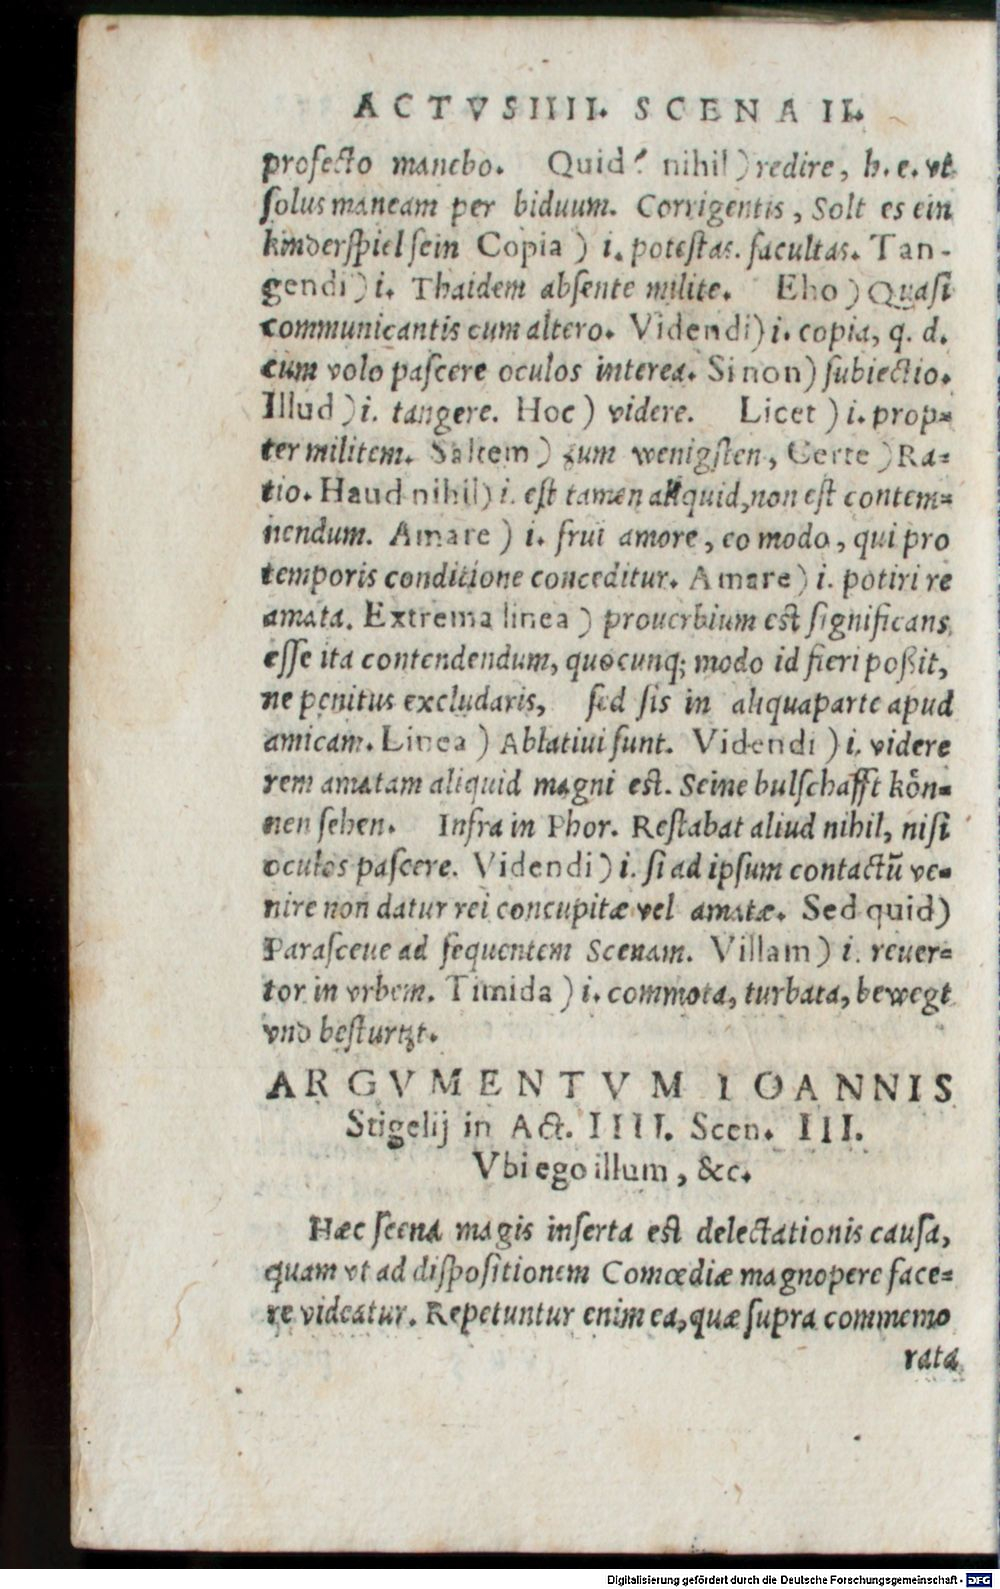 ACTVSIIII. SCENA II.
profecto manebo. Quid? nihil) redire, h. e. vt
solus maneam per biduum. Corrigentis, Solt es ein
kinderspiel sein Copia) i. potestas. facultas. Tan-
gendi) i. Thaidem absente milite. Eho) Quasi
communicantis cum altero. Videndi) i. copia, q. d.
cum volo pascere oculos interea. Si non) subiectio.
Illud) i. tangere. Hoc) videre. Licet) i. prop=
ter militem. Saltem) zum wenigsten, Certe) Ra=
tio. Haud nihil) i. est tamen aliquid, non est contem=
nendum. Amare) i. frui amore, eo modo, qui pro
temporis conditione conceditur. Amare) i. potiri re
amata. Extrema linea) prouerbium est significans
esse ita contendendum, quocunq; modo id fieri poßit,
ne penitus excludaris, sed sis in aliqua parte apud
amicam. Linea) Ablatiui sunt. Videndi) i. videre
rem amatam aliquid magni est. Seine bulschafft kön=
nen sehen. Infra in Phor. Restabat aliud nihil, nisi
oculos pascere. Videndi) i. si ad ipsum contactū ve=
nire non datur rei concupitæ vel amatæ. Sed quid)
Parasceue ad sequentem Scenam. Villam) i. reuer=
tor in vrbem. Timida) i. commota, turbata, bewegt
vnd besturtzt.
ARGVMENTVM IOANNIS
Stigelij in Act. IIII. Scen. III.
Vbi ego illum, &c.
Hæc scena magis inserta est delectationis causa,
quam vt ad dispositionem Comœdiæ magnopere face=
re videatur. Repetuntur enim ea, quæ supra commemo
rata
Digitalisierung gefördert durch die Deutsche Forschungsgemeinschaft - DFG